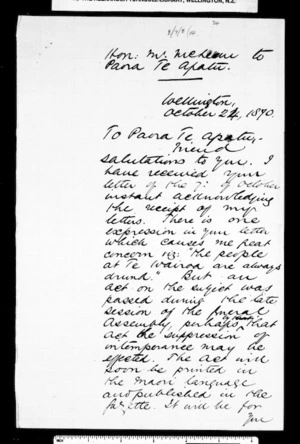 TO THE ALEXANDER TURNBULL LIBRARY, WELLINGTON, N.Z.
Hon: Mr. McLean to
Paora Te Apatu.
Wellington,
October 24, 1870.
To Paora Te Apatu,-
Friend
Salutations to you. I
have received your
letter of the 7: of October
instant acknowledging
the receipt of my
letters. There is one
expression in your letter
which causes me great
concern viz: "the people
at Te Wairoa are always
drunk." But an
act on the subject was
passed during the late
session of the General
Assembly, perhaps that
act the suppression of
intemperance may be
effected. The act will
soon be printed in
the Maori language
and published in the
Gazette. It will be for
you